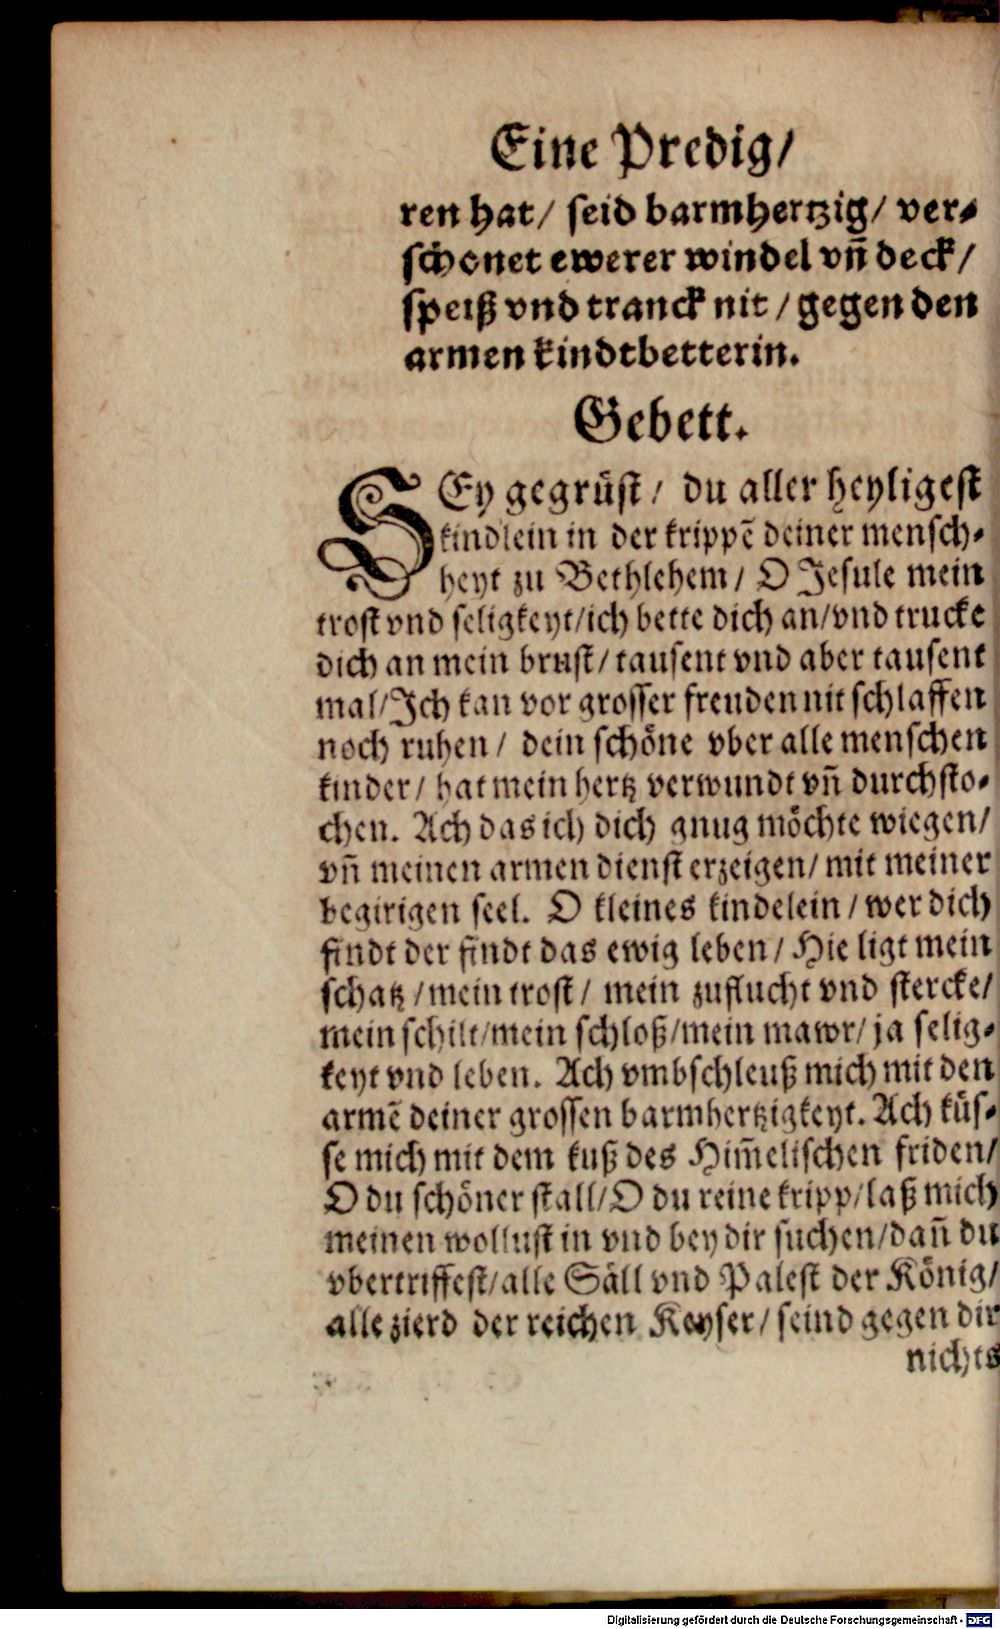 Eine Predig/
ren hat/ seid barmhertzig/ ver-
schonet ewerer windel vñ deck/
speiß vnd tranck nit / gegen den
armen kindtbetterin.
Gebett.
SEy gegrüst/ du aller heyligest
kindlein in der krippẽ deiner mensch-
heyt zu Bethlehem/ O Jesule mein
trost vnd seligkeyt/ich bette dich an/vnd trucke
dich an mein brust/ tausent vnd aber tausent
mal/Ich kan vor grosser freuden nit schlaffen
noch ruhen/ dein schöne vber alle menschen
kinder/ hat mein hertz verwundt vñ durchsto-
chen. Ach das ich dich gnug möchte wiegen/
vñ meinen armen dienst erzeigen/ mit meiner
begirigen seel. O kleines kindelein/ wer dich
findt der findt das ewig leben/ Hie ligt mein
schatz/mein trost/ mein zuflucht vnd stercke/
mein schilt/mein schloß/mein mawr/ ja selig-
keyt vnd leben. Ach vmbschleuß mich mit den
armẽ deiner grossen barmhertzigkeyt. Ach küs-
se mich mit dem kuß des Him̃elischen friden/
O du schöner stall/O du reine kripp/laß mich
meinen wollust in vnd bey dir suchen/dañ du
vbertriffest/alle Säll vnd Palest der König/
alle zierd der reichen Keyser/ seind gegen dir
nichts
Digitalisierung gefördert durch die Deutsche Forschungsgemeinschaft - DFG